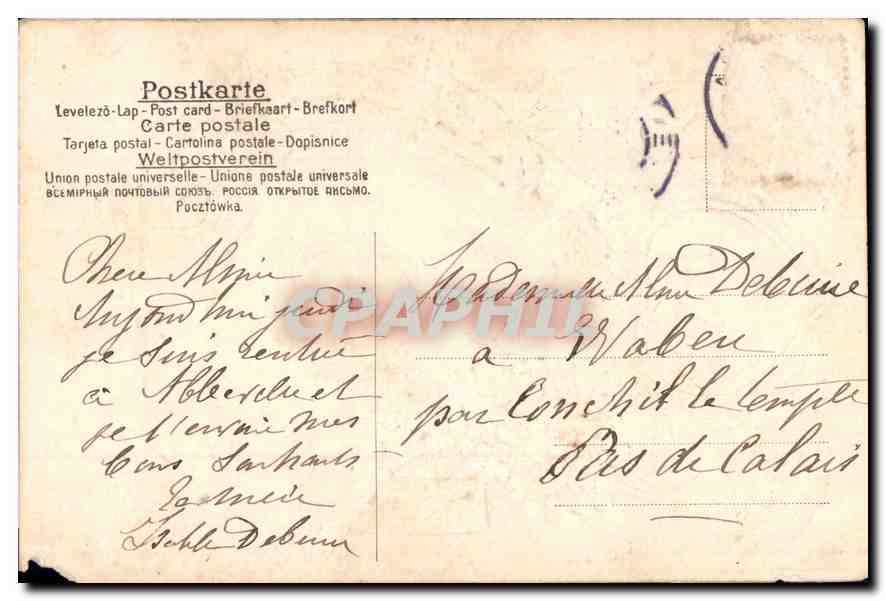 Postkarte
Levelező-Lap - Post card - Briefkaart - Brefkort
Carte postale
Tarjeta postal - Cartolina postale - Dopisnice
Weltpostverein
Union postale universelle - Unione postale universale
ВСЕМІРНЫЙ ПОЧТОВЫЙ СОЮЗЪ. РОССІЯ. ОТКРЫТОЕ ПИСЬМО.
Pocztówka.
Chere
Aujourd'hui jeudi
je suis rentré
à et
je t'envoie mes
bons souhaits
Ta
Debuire
Mademoiselle Debuire
a Waben
par Conchil le temple
Pas de Calais
CPAPHIL